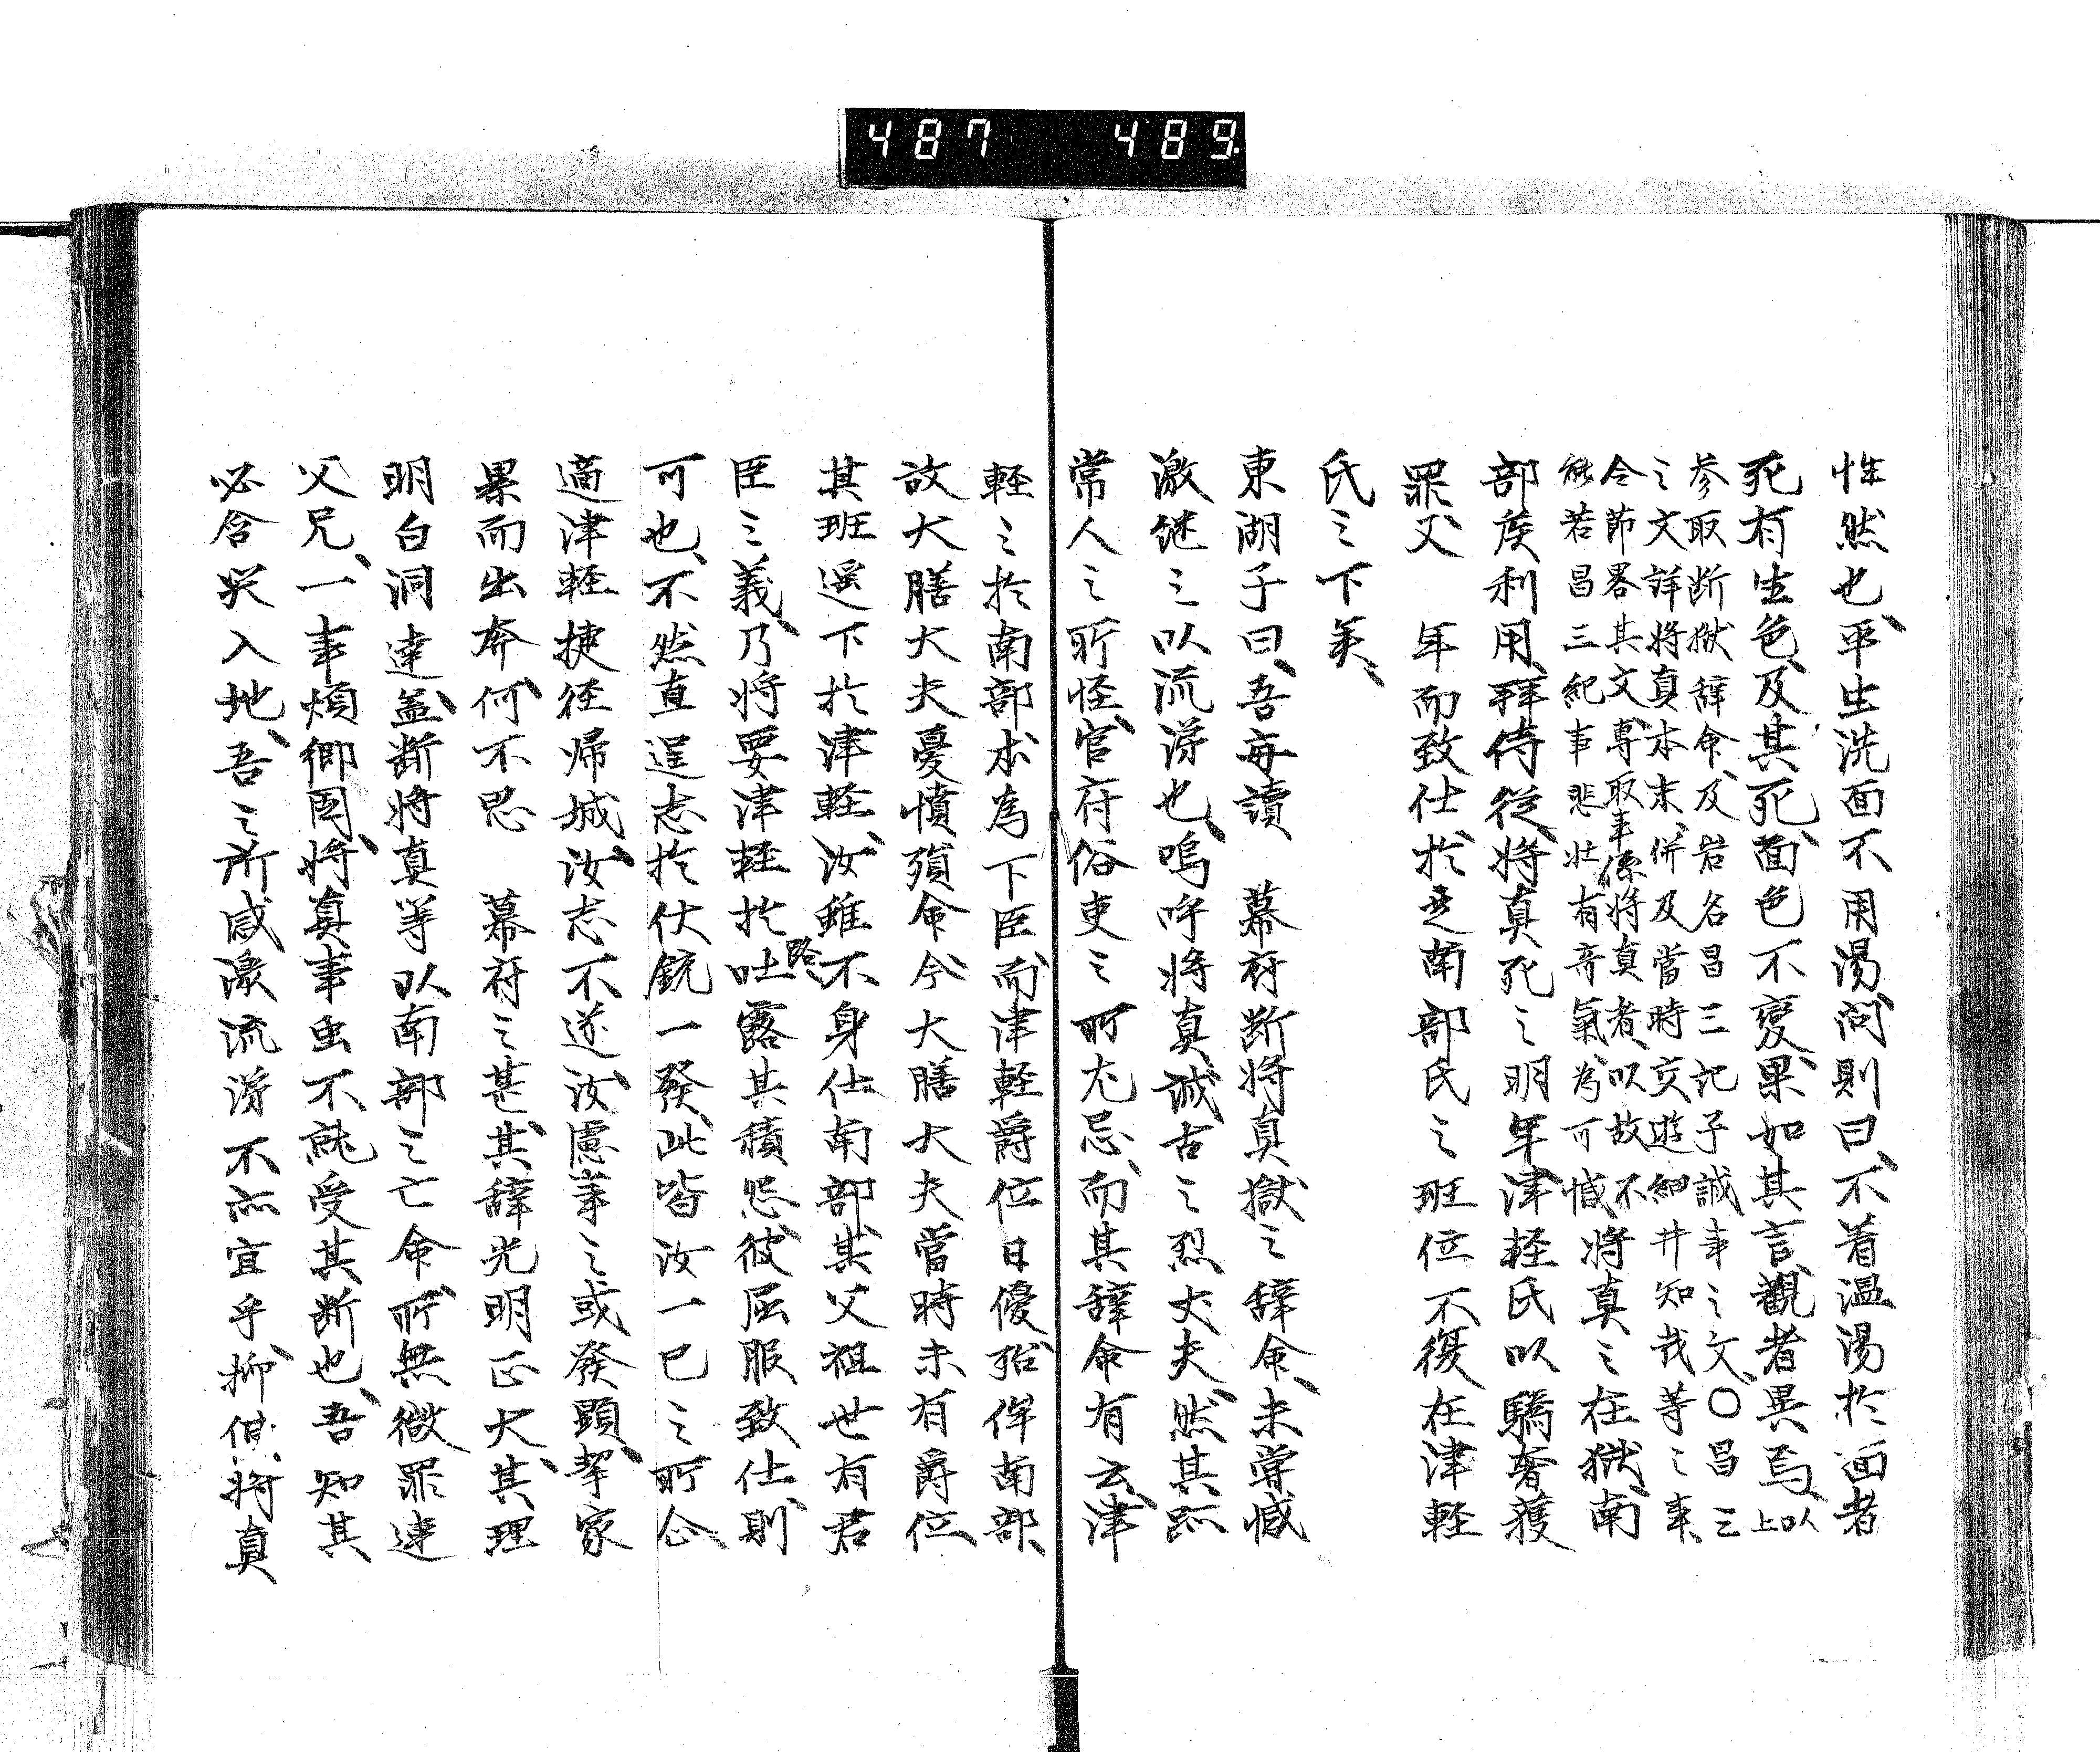 487 489
性然也、平生洗面不用湯、問則曰、不着温湯於面者
死有生色、及其死、面色不變、果如其言、觀者異焉、以上
参取断獄辞命、及岩名昌三記子誠事之文、〇昌三
之文詳将真本末、併及當時交遊細井知哉等之事、
今節畧其文、専取事係将真者、以故不
能若昌三紀事悲壮有奇氣、為可憾、将真之在獄、南
部侯利用、拜侍從、将真死之明年、津軽氏以驕奢獲
罪、又 年而致仕、於是南部氏之班位不復在津軽
氏之下矣、
東湖子曰、吾毎讀 幕府断将真獄之辞命、未嘗憾
激継之以流涕也、嗚呼将真、誠古之烈丈夫、然其跡
常人之所怪、官府俗吏之所尤忌、而其辞命有云、津
軽之於南部、本為下臣、而津軽爵位日優、殆侔南部、
故大膳大夫憂憤殞命、今大膳大夫當時未有爵位、
其班遥下於津軽、汝雖不身仕南部、其父祖世有君
臣之義、乃将要津軽於路、吐露其積怨、彼屈服致仕、則
可也、不然直逞志於伏銃一發、此皆汝一已之所企、
適津軽捷径帰城、汝志不遂、汝慮事之或發顕、挈家
累而出奔、何不思 幕府之甚、其辞光明正大、其理
明白洞達、盖断将真等以南部之亡命、所無微罪連
父兄、一事煩御國、将真事虫不就受其断也、吾知其
必含笑入地、吾之所感激流涕不亦宜乎、抑使将真